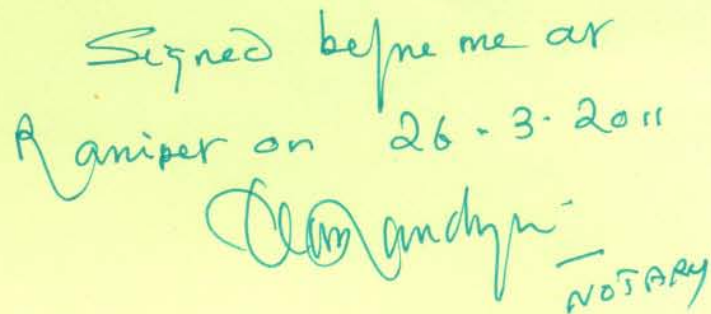 Signed before me at
Ranipet on 26-3-2011
NOTARY